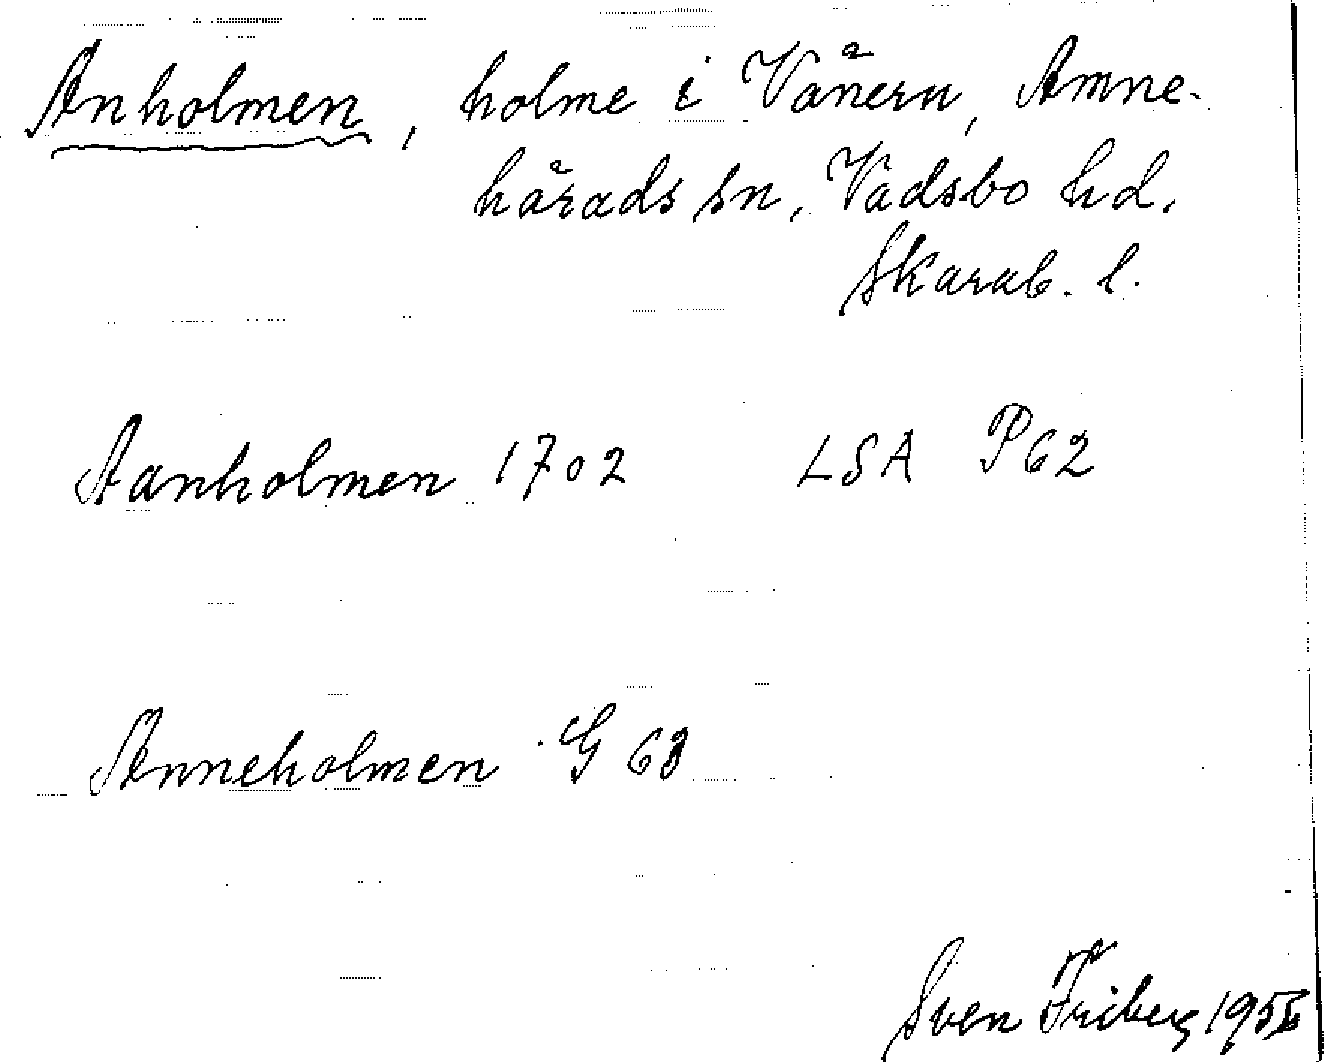 Anholmen, holme i Vänern, Amne-
härads sn, Vadsbo hd.
Skarab. l.
Aanholmen 1702 LSA P62
Anneholmen G 68
Sven Friberg